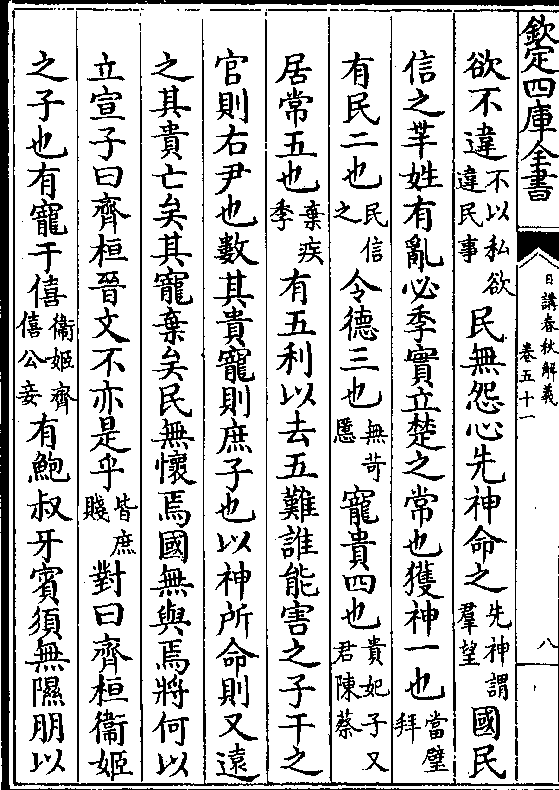 欽定四庫全書
日講春秋解義 卷五十一 八
欲不違不以私欲違民事民無怨心先神命之先神謂羣望國民
信之芈姓有亂必季實立楚之常也獲神一也當璧拜
有民二也民信之令德三也無苛慝寵貴四也貴妃子又君陳蔡
居常五也棄疾季有五利以去五難誰能害之子干之
官則右尹也數其貴寵則庶子也以神所命則又遠
之其貴亡矣其寵棄矣民無懷焉國無與焉將何以
立宣子曰齊桓晉文不亦是乎皆庶賤對曰齊桓衞姬
之子也有寵于僖衞姬齊僖公妾有鮑叔牙賓須無隰朋以